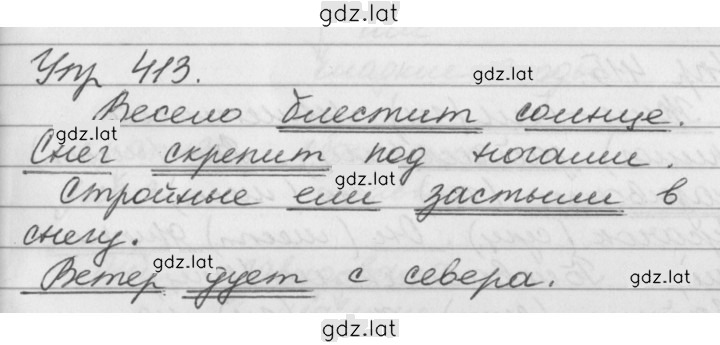 gdz.lat
Упр 413.
gdz.lat
Весело блестит солнце.
gdz.lat
Снег скрепит под ногами.
gdz.lat
Стройные ели застыли в
снегу.
gdz.lat
Ветер дует с севера.
gdz.lat
gdz.lat